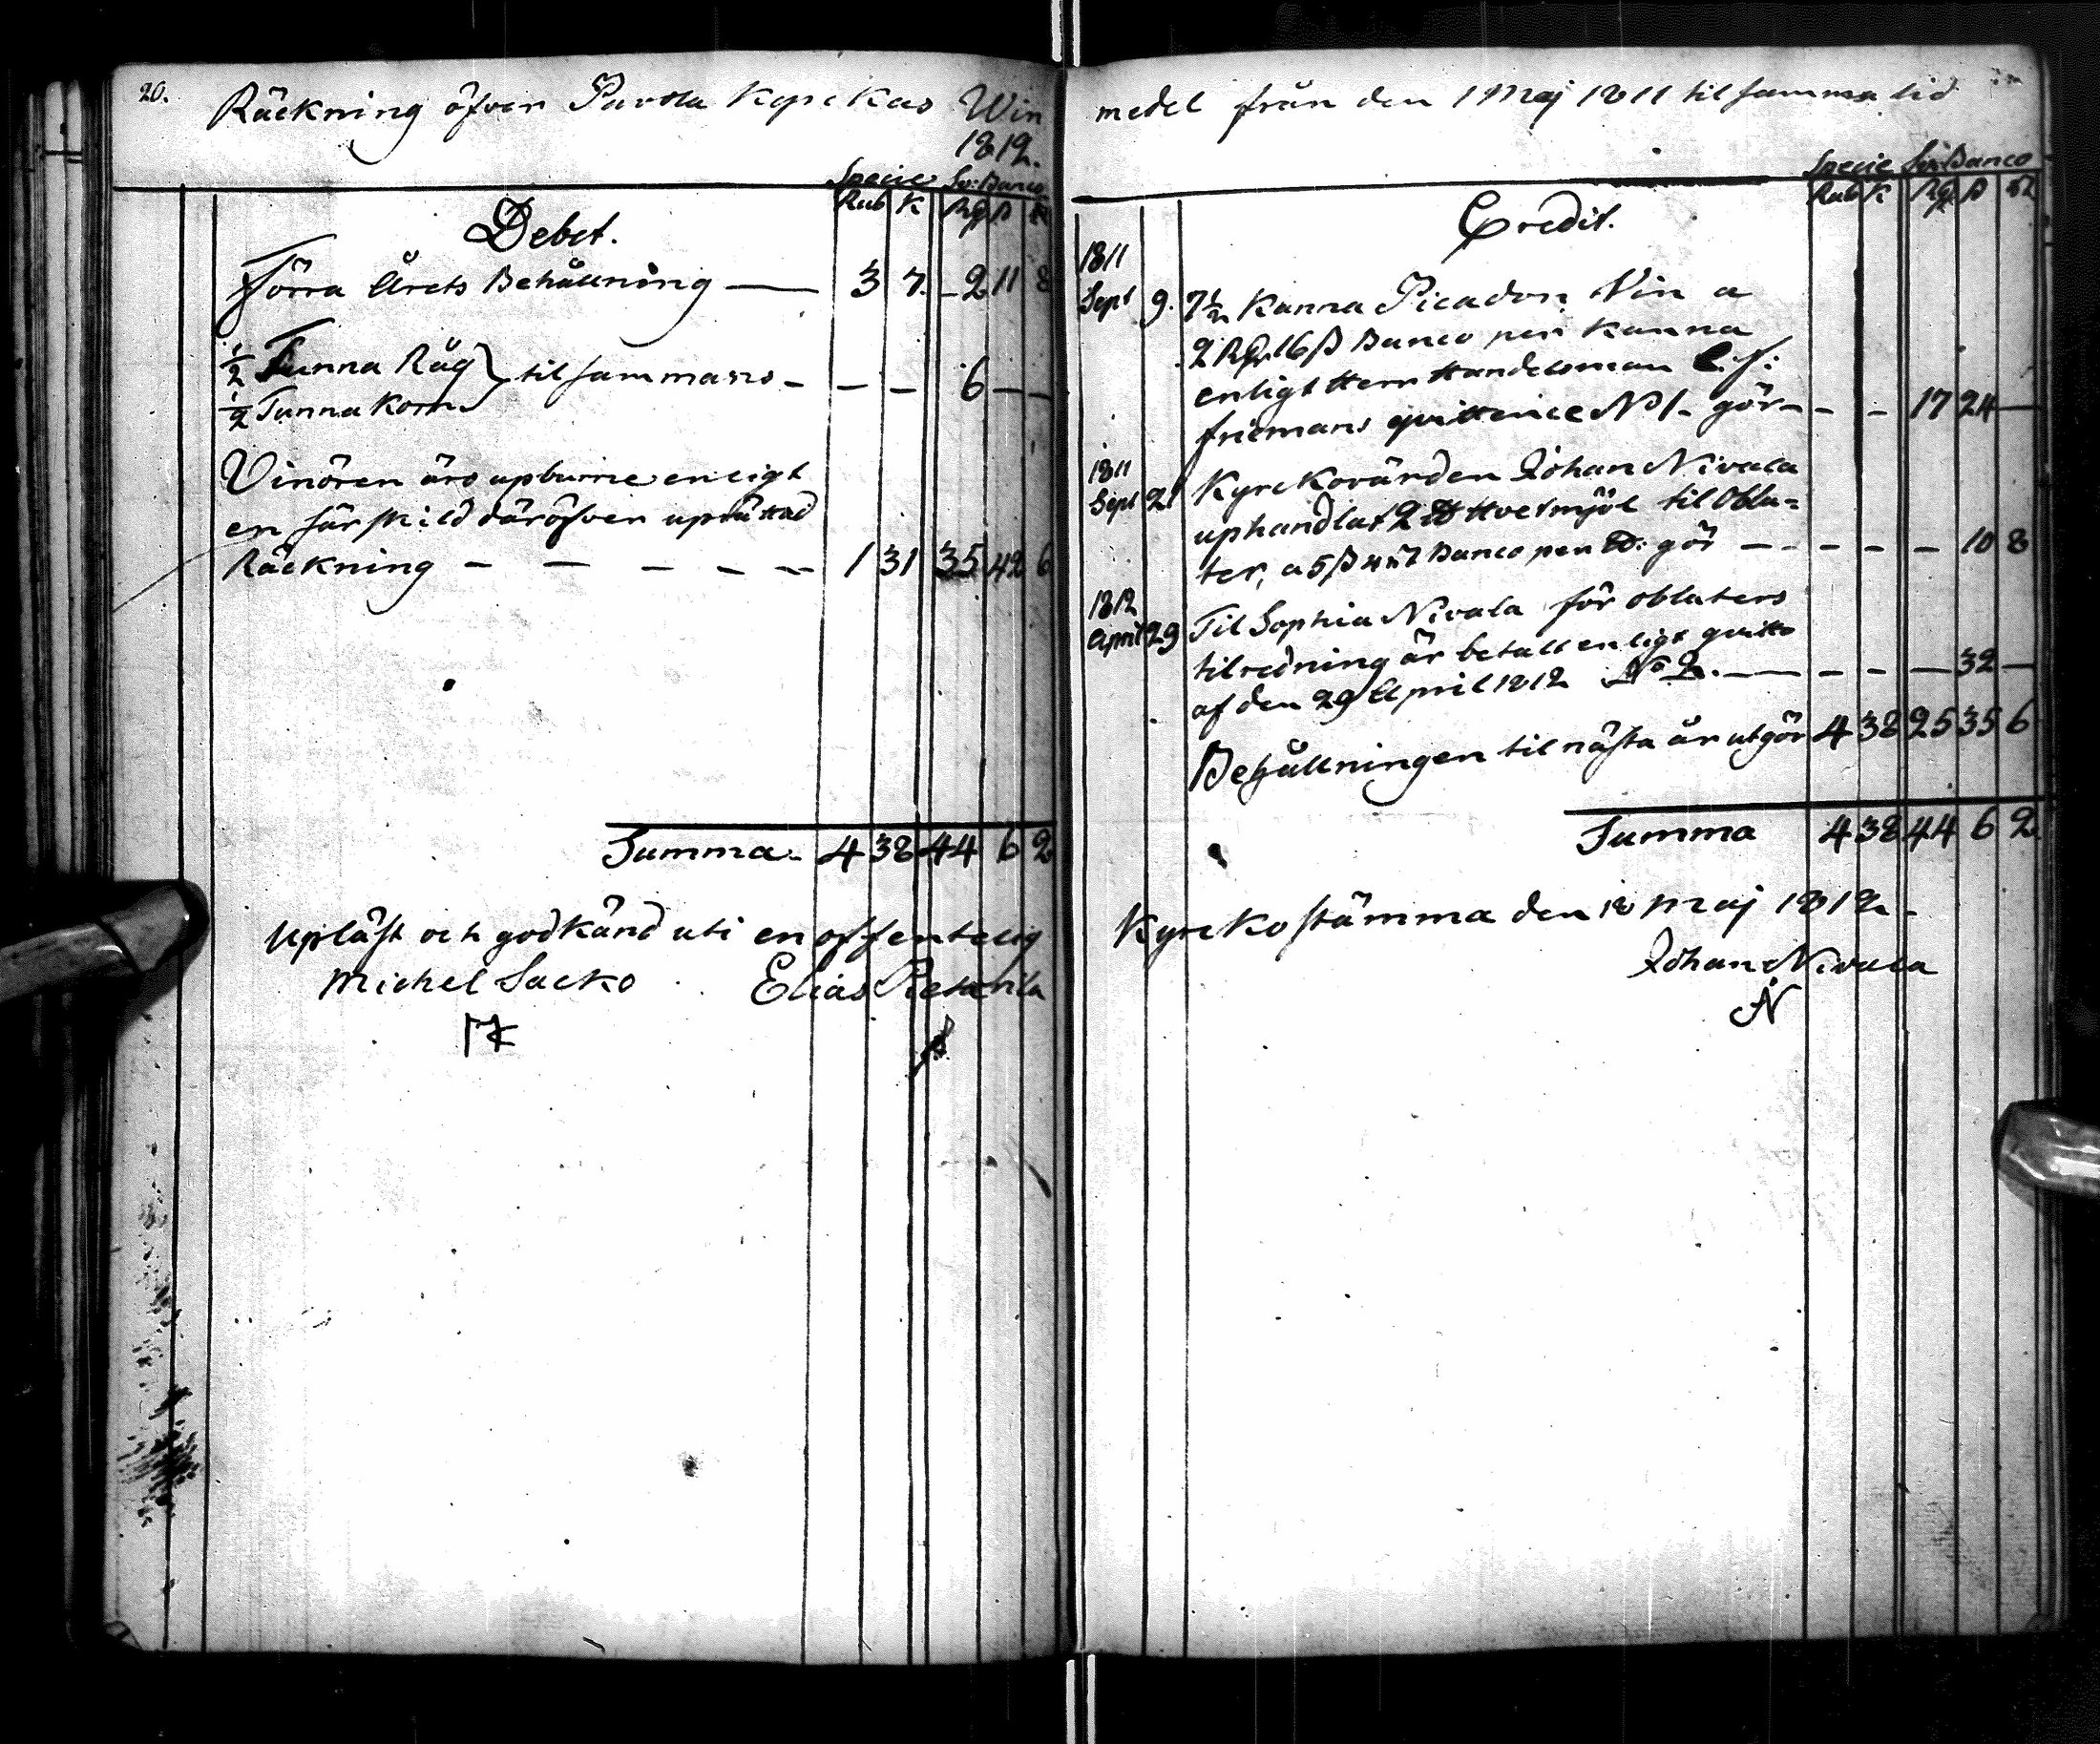 20.
Räckning öfver Pavola Kyrckas Win
1812.
Specie Sv: Banco
Rub K Rdr ß
Debet.
Förra Årets Behållning — 3 7. - 2 11 8
1/2 Tunna Råg } tilsammans - - - 6 - -
1/2 Tunna Korn
Vinören äro upburne enligt
en särskild däröfver uprättad
Räckning - - - - - 1 31 35 42 6
Summa. 4 38 44 6 2
Upläst och godkänd uti en offentelig
Michel Sacko Elias
medel från den 1 Maj 1811 til samma tid
Specie Sv: Banco
Rub K Rdr ß
Credit.
1811
Sept 9. 7 1/2 Kanna Picadon Vin a
2 Rdr 16 ß Banco per Kanna
enligt Herr Handelsman C. J:
Friemans quittence N 1 - gör - - - 17 24 —
1811
Sept 21 Kyrckovärden Johan Nivala
uphandlat 2 ℔ Hvetmjöl til Obla=
ter, a 5 ß 4 Banco per ℔: gör - - - - - 10 8
1812
April 29 Til Sophia Nivala för oblaters
tilredning är betalt enligt quitto
af den 29 April 1812 No 2. — - - - 32 —
Behållningen til nästa år utgör 4 38 25 35 6
Summa 4 38 44 6 2
Kyrckostämma den 18 Maj 1812.
Johan Nivala
N